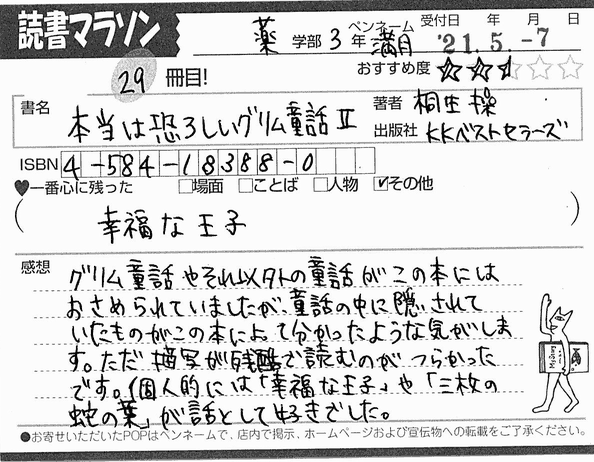 読書マラソン
薬 学部 3 年 ペンネーム 満月 受付日 年 月 日
'21.5.-7
29 冊目!
おすすめ度 ★★☆☆☆
書名 本当は恐ろしいグリム童話Ⅱ
著者 桐生操
出版社 KKベストセラーズ
ISBN 4-584-18388-0
♥一番心に残った □場面 □ことば □人物 ☑その他
( 幸福な王子 )
感想
グリム童話やそれ以外の童話がこの本には
おさめられていましたが、童話の中に隠されて
いたものがこの本によって分かったような気がしま
す。ただ描写が残酷で読むのがつらかった
です。個人的には「幸福な王子」や「三枚の
蛇の葉」が話として好きでした。
●お寄せいただいたPOPはペンネームで、店内で掲示、ホームページおよび宣伝物への転載をご了承ください。